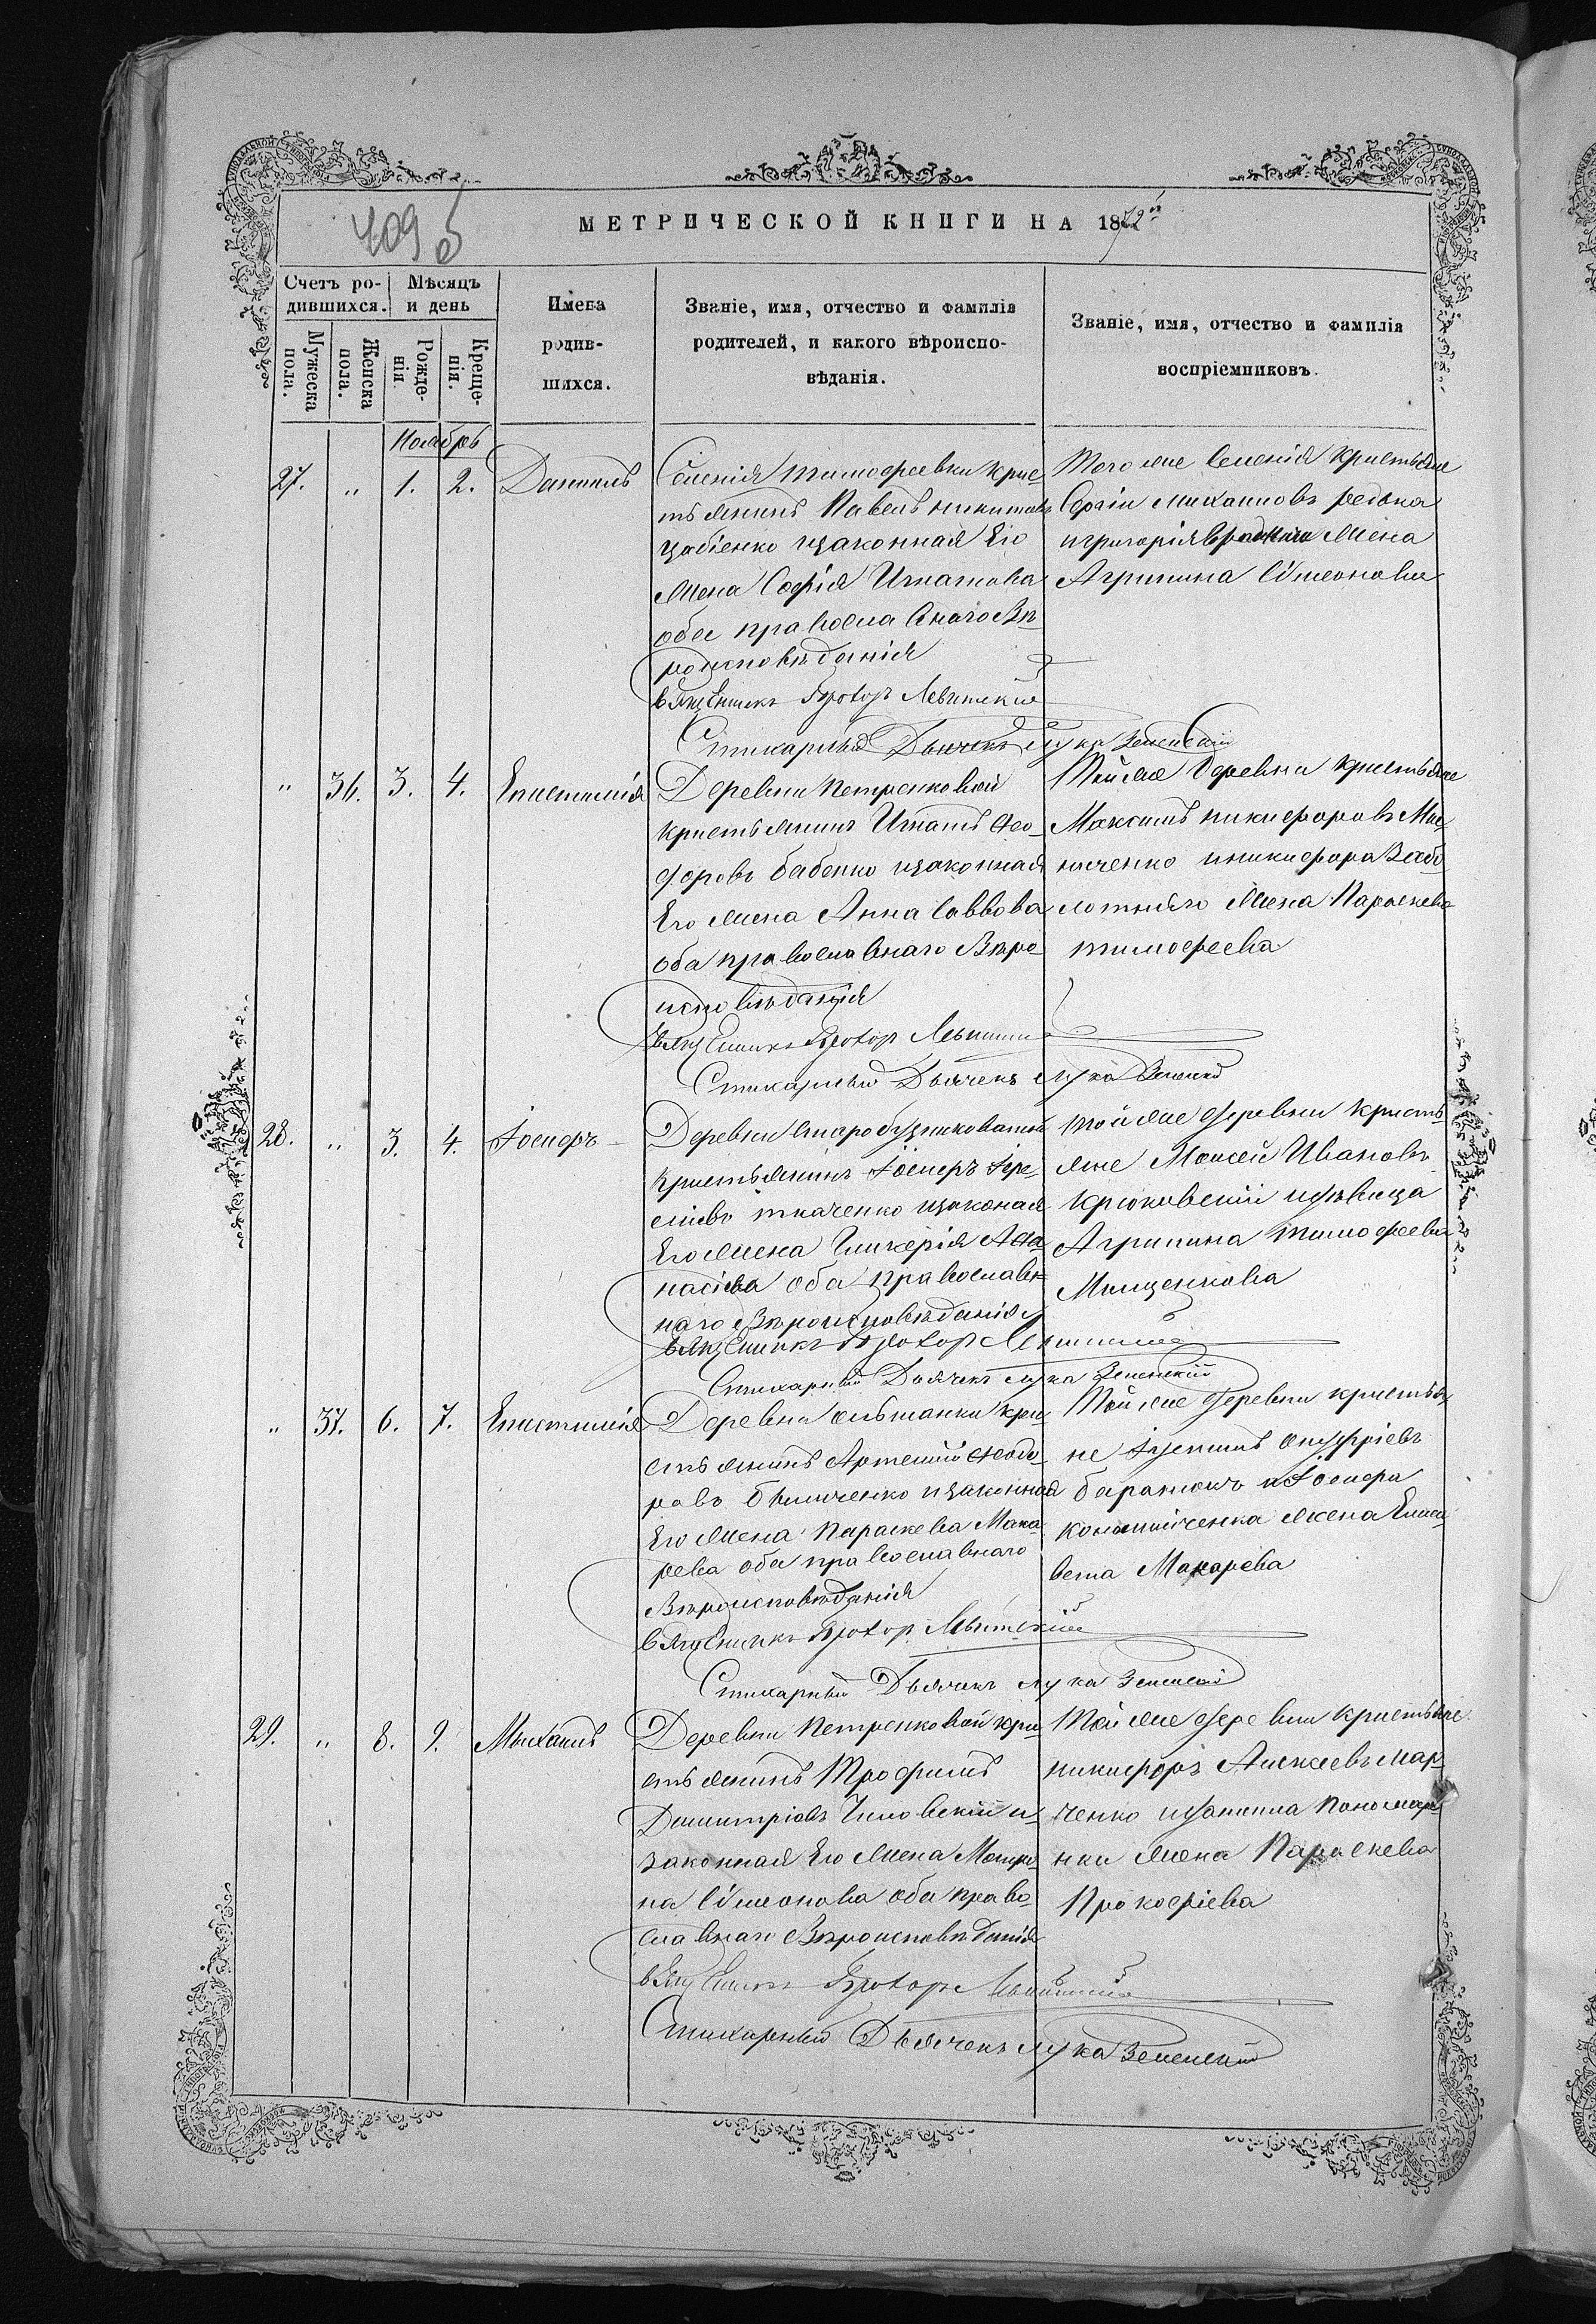 409 об
МЕТРИЧЕСКОЙ КНИГИ НА 1872й
Счетъ ро-
дившихся.
Мѣсяцъ
и день
Имена
родив-
шихся.
Званіе, имя, отчество и фамилія
родителей, и какого вѣроиспо-
вѣданія.
Званіе, имя, отчество и фамилія
воспріемниковъ.
Мужеска
пола.
Женска
пола.
Рожде-
нія
Креще-
нія.
Ноябрь
27. „ 1. 2. Даниилъ
Селенія Тимофеевки Крес-
тьянинъ Павелъ Никитовъ
изаконная Его
Жена Софія Игнатова
оба православнаго Вѣ-
роисповѣданія
Священникъ Прохоръ Левитскій
Стихарный Дьячекъ Лука Земенскій
Того же Селенія Крестьяне
Сергій Михаиловъ редька
играгорія жена
Агрипина Симеонова
„ 36. 3. 4. Епистимія
Деревни Петренковой
Крестьянинъ Игнатъ Фео-
доровъ бабенко изаконная
Его жена Анна Саввова
оба православнаго Вѣро-
исповѣданія
Священникъ Прохоръ Левитскій
Стихарный Дьячекъ Лука Земенскій
Той же деревни Крестьяне
Максимъ Никифоровъ Ми-
ниченко иникифора Забо
лотнаго жена Параскева
тимофеева
28. „ 3. 4. Іосифъ
Деревни Старобузниковатой
Крестьянинъ Іосифъ Іере-
міевъ ткаченко изаконая
Его жена Гликерія Афа-
насіева оба православ-
наго Вѣроисповѣданія
Священникъ Прохоръ Левитскій
Стихарный Дьячекъ Лука Земенскій
той же деревни Кресть-
яне Моисей Ивановъ
Крюковскій идѣвица
Агрипина тимофеева
Мищенкова
„ 37. 6. 7. Епистимія
Деревни ольшанки кре-
стьянинъ Артемій Феодо-
ровъ изаконная
Его жена Параскева Мака-
рева оба православнаго
Вѣроисповѣданія
Священникъ Прохоръ Левитскій
Стихарный Дьячекъ Лука Земенскій
Той же деревни крестья-
не Онуфріевъ
баранюкъ иІосифа
жена Елиса-
вета Макарева
29. „ 8. 9. Михаилъ
Деревни Петренковой кре-
стьянинъ Трофимъ
Димитріевъ и-
законная Его жена Матро-
на Симеонова оба право-
славнаго Вѣроисповѣданія
Священникъ Прохоръ Левитскій
Стихарный Дьячекъ Лука Земенскій
Той же деревни Крестьяне
никифоръ Алексеевъ мар-
ченко Пономар-
нки жена Параскева
Прокофіева